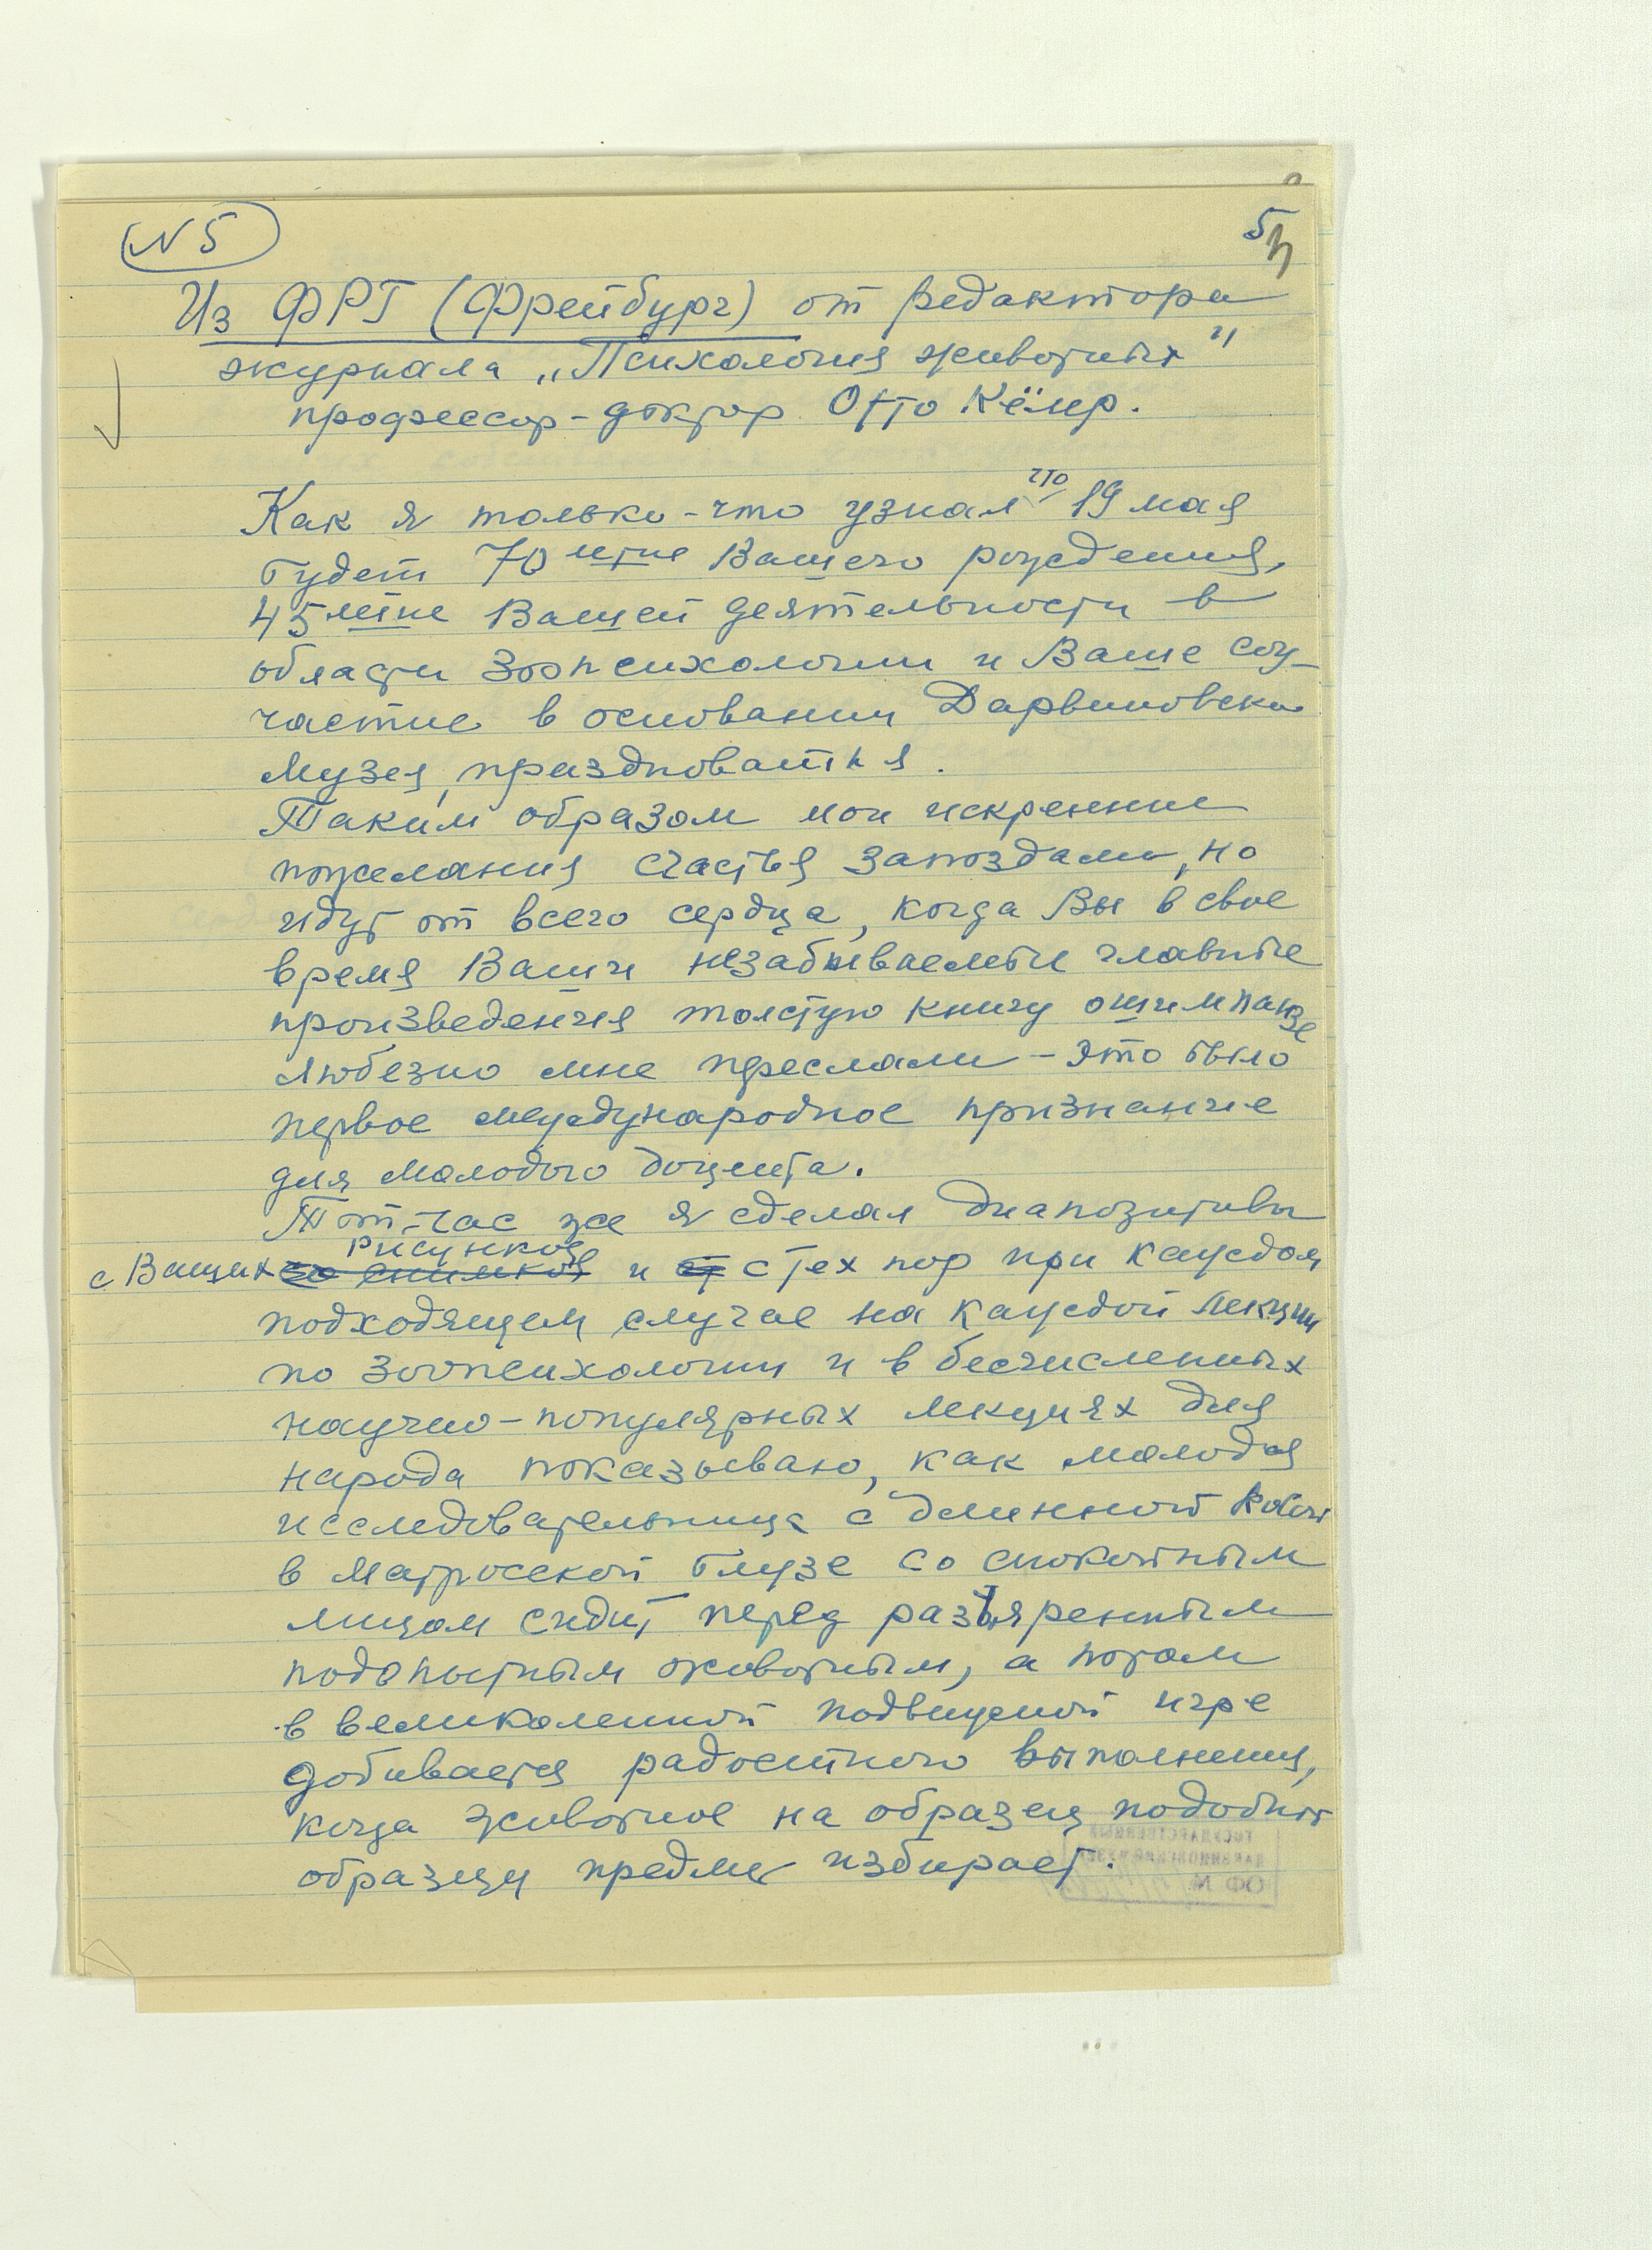 N 5
5
Из ФРГ (Фрейбург) от редактора
журнала „Психология животных"
профессор-доктор Отто Кёлер.
Как я только-что узнал что 19 мая
будет 70летие Вашего рождения,
45летие Вашей деятельности в
области Зоопсихологии и Ваше соу-
частие в основании Дарвиновск.
Музея, празднования.
Таким образом мои искренние
пожелания счастья запоздали, но
идут от всего сердца, когда Вы в свое
время Ваши незабываемые главные
произведения толстую книгу о шимпанзе
любезно мне переслали – это было
первое международное признание
для молодого доцента.
Тот-час же я сделал диапозитивы
с Ваших рисунков и с тех пор при каждом
подходящем случае на каждой лекции
по зоопсихологии и в бесчисленных
научно-популярных лекциях для
народа показываю, как молодая
исследовательница с длинной косой
в матросской блузе со спокойным
лицом сидит перед разъяренным
подопытным животным, а потом
в великолепной подвижной игре
добивается радостного выполнения,
когда животное на образец подобный
образцу предмет избирает.